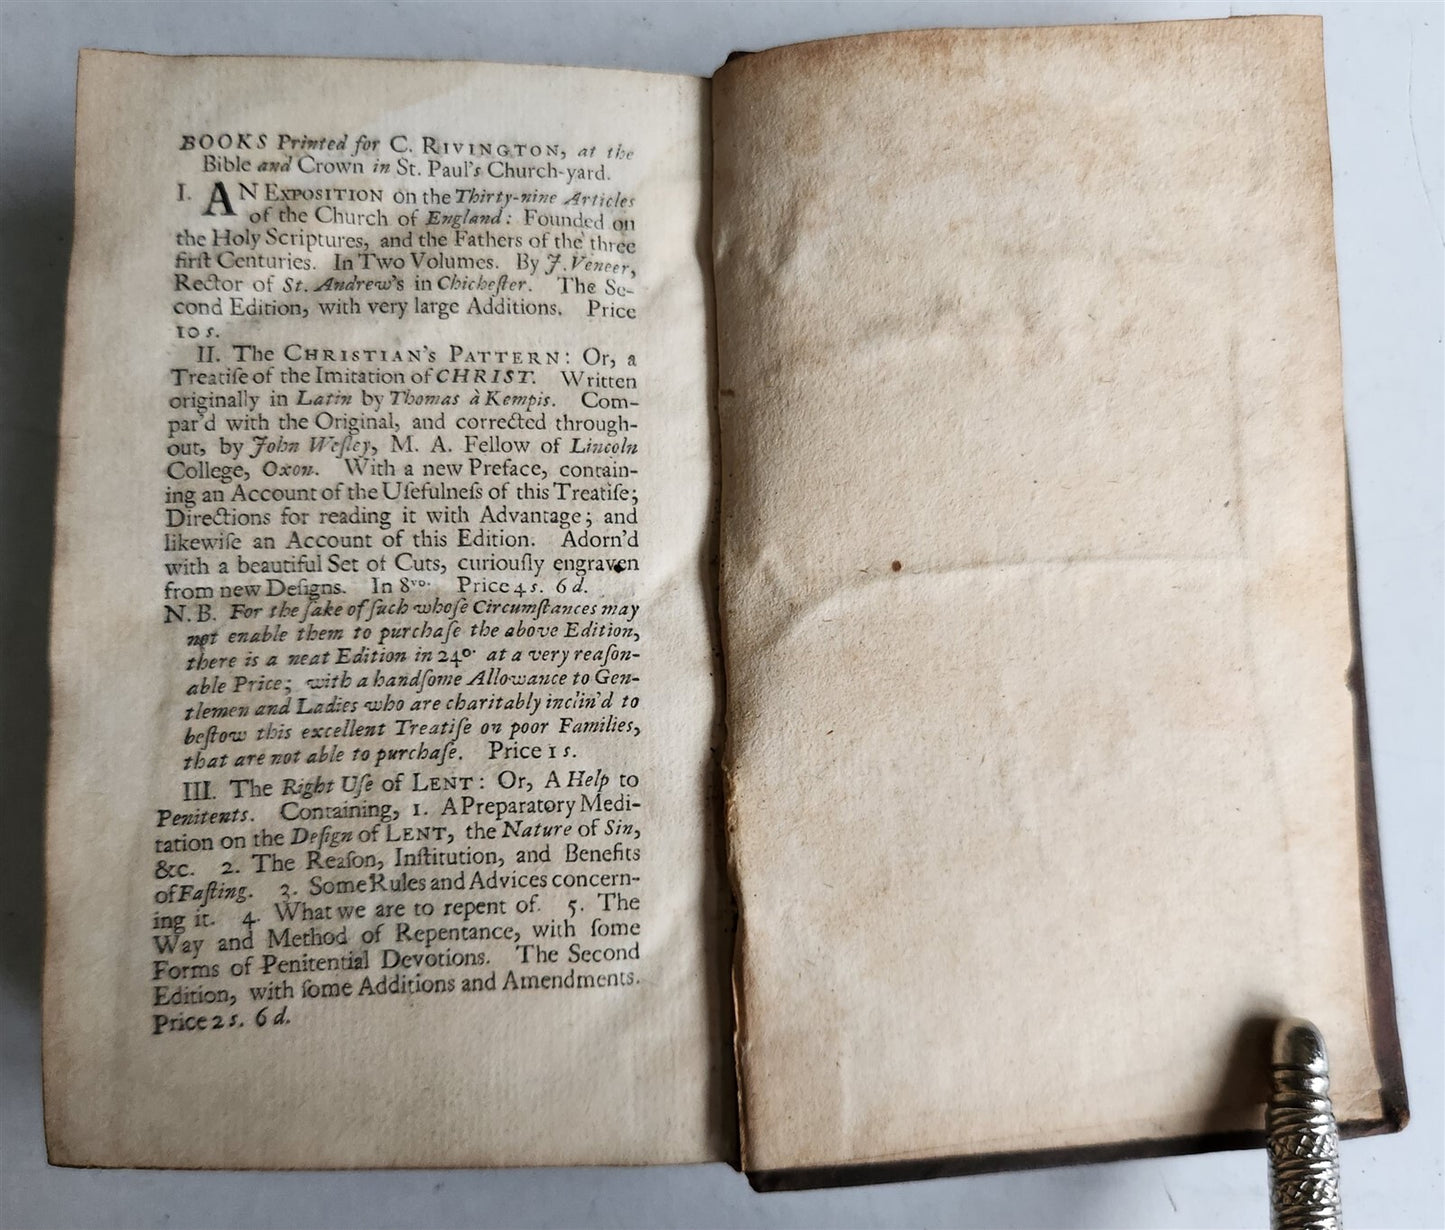 BOOKS Printed for C. RIVINGTON, at the
Bible and Crown in St. Paul's Church-yard.
I. AN EXPOSITION on the Thirty-nine Articles
of the Church of England: Founded on
the Holy Scriptures, and the Fathers of the three
firſt Centuries. In Two Volumes. By J. Veneer,
Rector of St. Andrew's in Chicheſter. The Se-
cond Edition, with very large Additions. Price
10 s.
II. The CHRISTIAN'S PATTERN: Or, a
Treatiſe of the Imitation of CHRIST. Written
originally in Latin by Thomas à Kempis. Com-
par'd with the Original, and corrected through-
out, by John Weſley, M. A. Fellow of Lincoln
College, Oxon. With a new Preface, contain-
ing an Account of the Uſefulneſs of this Treatiſe;
Directions for reading it with Advantage; and
likewiſe an Account of this Edition. Adorn'd
with a beautiful Set of Cuts, curiouſly engraven
from new Deſigns. In 8vo. Price 4 s. 6 d.
N. B. For the ſake of ſuch whoſe Circumſtances may
not enable them to purchaſe the above Edition,
there is a neat Edition in 24o. at a very reaſon-
able Price; with a handſome Allowance to Gen-
tlemen and Ladies who are charitably inclin'd to
beſtow this excellent Treatiſe on poor Families,
that are not able to purchaſe. Price 1 s.
III. The Right Uſe of LENT: Or, A Help to
Penitents. Containing, 1. A Preparatory Medi-
tation on the Deſign of LENT, the Nature of Sin,
&c. 2. The Reaſon, Inſtitution, and Benefits
of Faſting. 3. Some Rules and Advices concern-
ing it. 4. What we are to repent of. 5. The
Way and Method of Repentance, with ſome
Forms of Penitential Devotions. The Second
Edition, with ſome Additions and Amendments.
Price 2 s. 6 d.